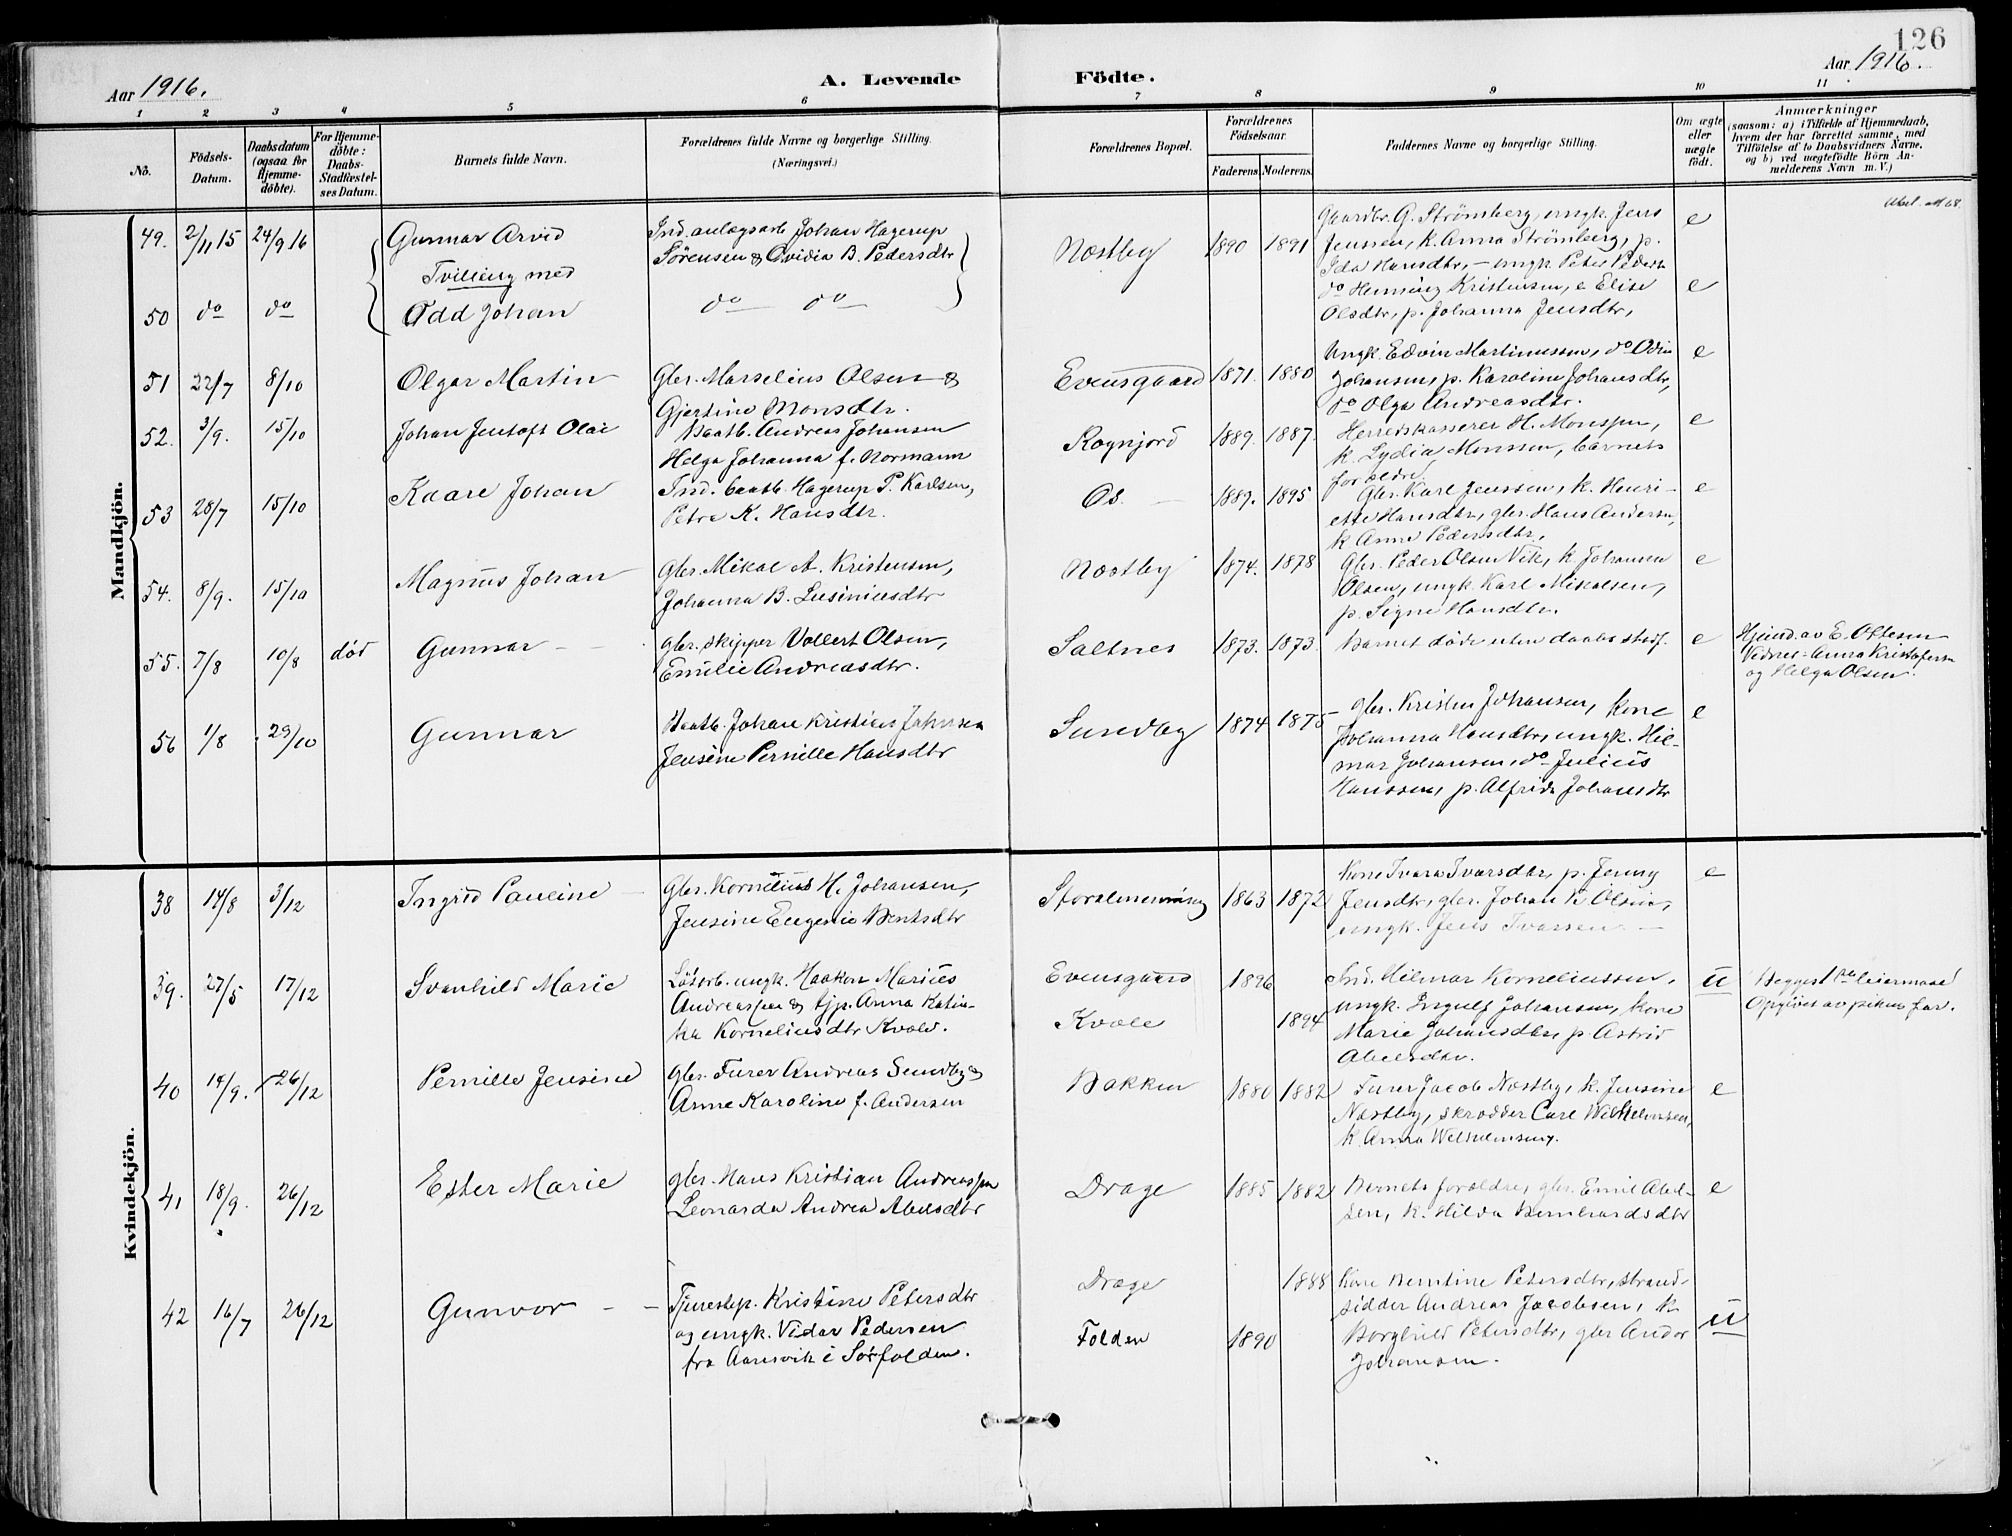 126
Aar 1916.
A. Levende Födte.
Aar 1916.
1 2 3 4 5 6 7 8 9 10 11
No.
Födsels-Datum.
Daabsdatum (ogsaa for Hjemme-döbte).
For Hjemme-döbte: Daabs-Stadfæstel-ses Datum.
Barnets fulde Navn.
Forældrenes fulde Navne og borgerlige Stilling.
(Næringsvei.)
Forældrenes Bopæl.
Forældrenes Födselsaar.
Faderens. Moderens.
Faddernes Navne og borgerlige Stilling.
Om ægte eller uægte födt.
Anmærkninger
(saasom: a) i Tilfælde af Hjemmedaab, hvem der har forrettet samme, med Tilföielse af to Daabsvidners Navne, og b) ved uægtefödte Börn An-melderens Navn m. V.)
Mandkjön.
49. 2/11 15 24/9 16 Gunnar Arvid
Tvilling med
Ind. anlægsarb. Johan Hagerup
Sörensen & Ovidia B. Pedersdtr
Næstby 1890 1891
Gaardbr. G. Strömberg, ungk. Jens
Jenssen, k. Anna Strömberg, p.
Ida Hansdtr, - ungk. Peter Peders
e
50 do do Odd Johan do do
do Henning Kristensen, e Elise
Olsdtr, p. Johanna Jensdtr,
e
51 22/7 8/10 Olgar Martin
Gbr. Marselius Olsen &
Gjertine Monsdtr.
Evensgaard 1871. 1880
Ungk. Edvin Martinussen, do Odin
Johansen, p. Karoline Johansdtr,
do Olga Andreasdtr.
e
52. 3/9. 15/10 Johan Jentoft Olai
Baatb. Andreas Johansen
Helga Johanna f. Normann
Rognjord 1889. 1887.
Herredskasserer H. Monssen,
k. Lydia Monssen, barnets
forældre.
e
53 28/7 15/10 Kaare Johan
Ind. baatb. Hagerup P. Karlsen,
Petra K. Hansdtr.
Os. 1889. 1895
Gbr. Karl Jenssen, k. Henri-
ette Hansdtr, gbr. Hans Andersen,
k Anne Pedersdtr,
e
54. 8/9. 15/10 Magnus Johan
Gbr. Mikal A. Kristensen,
Johanna B. Lusiniusdtr
Næstby 1874. 1878
Gbr. Peder Olsen Vik, k Johansen
Olsen, ungk. Karl Mikalsen,
p. Signe Hansdtr.
e
55. 7/8 10/8 död Gunnar
gbr. skipper Vollert Olsen,
Emilie Andreasdtr.
Saltnes 1873. 1873.
Barnet döde uten daabs stadf.
e
Hjemd. av E. Ottesen
Vidner: Anna Kristofersen
og Helga Olsen.
56 1/8 29/10 Gunnar
Baatb. Johan Kristian Johnsen
Jensine Pernille Hansdtr
Sundby 1874 1875
gbr. Kristen Johansen, kone
Johanna Hansdtr, ungk. Hil-
mar Johansen, do Julius
Hanssen, p. Alfrida Johansdtr
e
Kvindekjön.
38 14/8 3/12 Ingrid Pauline
Gbr. Kornelius H. Johansen,
Jensine Eugenie Bentsdtr
Storalmenning 1863 1872
Kone Ivara Ivarsdtr, p. Jenny
Jensdtr, gbr. Johan K Olsen,
ungk. Jens Ivarsen
e
39. 27/5 17/12 Svanhild Marie
Lösarb. ungk. Haakon Marius
Andreassen & tjp. Anna Katin-
ka Korneliusdtr Kvale.
Evensgaard 1896
Kvale 1894
Ind. Hilmar Korneliussen,
ungk. Ingulf Johansen, kone
Marie Johansdtr, p. Astrid
Abelsdtr.
u
Begges 1ste leiermaal
Opgivet av pikens far.
40 14/9. 26/12 Pernille Jensine
gbr. Furer Andreas Sundby &
Anne Karoline f. Andersen
Bakken 1880 1882
Furer Jacob Næstby, k. Jensine
Næstby, skrædder Carl Wilhelmsen,
k. Anna Wilhelmsen.
e
41 18/9. 26/12 Ester Marie
gbr. Hans Kristian Andreassen
Leonarda Andrea Abelsdtr
Drage 1885 1882
Barnets forældre, gbr. Emil Abel-
sen, k. Hilda Bernhardsdtr
e
42 16/7 26/12 Gunvor
Tjenestep. Kristine Petersdtr
og ungk. Vidar Pedersen
fra Aarsvik i Sörfolden.
Drage 1888
Folden 1890
Kone Berntine Petersdtr, strand-
sidder Andreas Jacobsen, k.
Borghild Petersdtr, gbr Andor
Johansen.
u